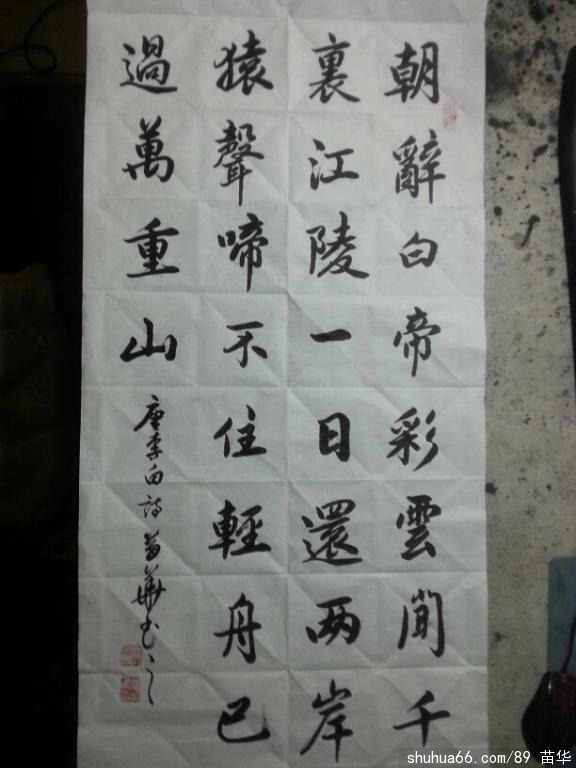 朝辭白帝彩雲間千
裏江陵一日還两岸
猿聲啼不住輕舟已
過萬重山
唐李白詩苗華书之
shuhua66.com/89 苗华